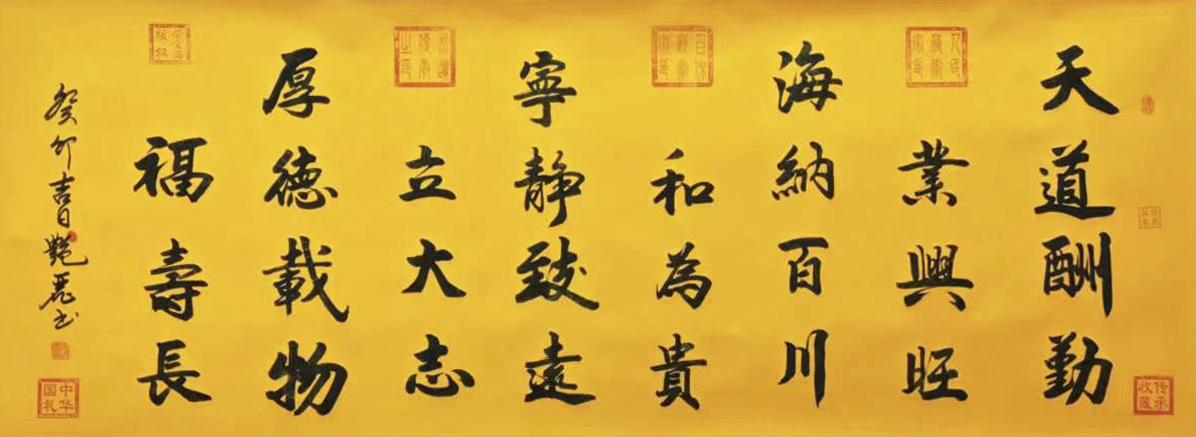 天道酬勤
業興旺
海納百川
和為貴
寧靜致遠
立大志
厚德載物
福壽長
癸卯吉日艷麗书
传承收藏
中华国礼